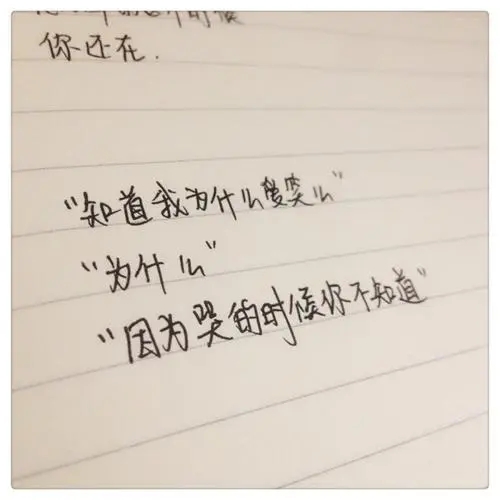 的时候
你还在.
“知道我为什么爱笑么”
“为什么”
“因为哭的时候你不知道”